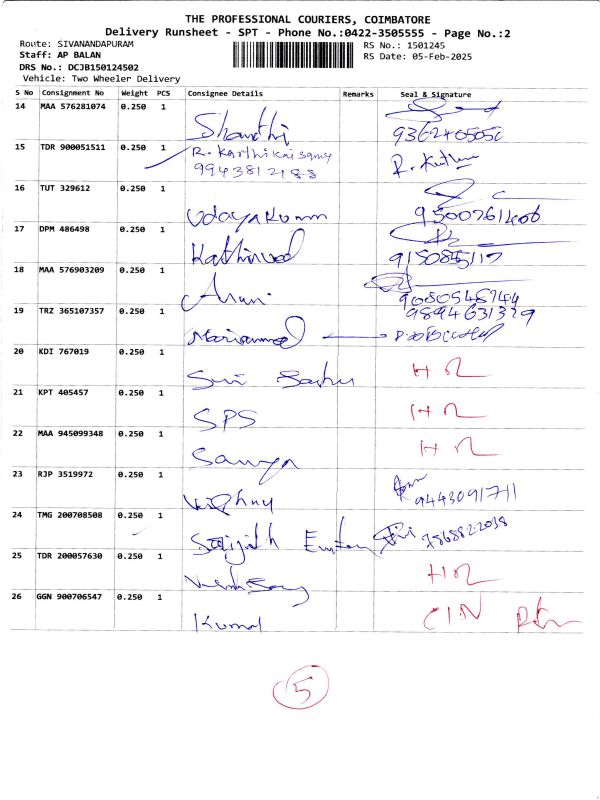 THE PROFESSIONAL COURIERS, COIMBATORE
Delivery Runsheet - SPT - Phone No.:0422-3505555 - Page No.:2
Route: SIVANANDAPURAM RS No.: 1501245
Staff: AP BALAN RS Date: 05-Feb-2025
DRS No.: DCJB150124502
Vehicle: Two Wheeler Delivery
S No Consignment No Weight PCS Consignee Details Remarks Seal & Signature
14 MAA 576281074 0.250 1
Shanthi
15 TDR 900051511 0.250 1 R. Karthikaisamy
9943812188
16 TUT 329612 0.250 1
Udayakumm
17 DPM 486498 0.250 1
Kathirvel
18 MAA 576903209 0.250 1
Arun
19 TRZ 365107357 0.250 1 9894631329
20 KDI 767019 0.250 1 H
21 KPT 405457 0.250 1 H
SPS
22 MAA 945099348 0.250 1 H
Sanya
23 RJP 3519972 0.250 1
9443091711
24 TMG 200708508 0.250 1
7868822038
25 TDR 200057630 0.250 1 H
26 GGN 900706547 0.250 1
Kumal
5